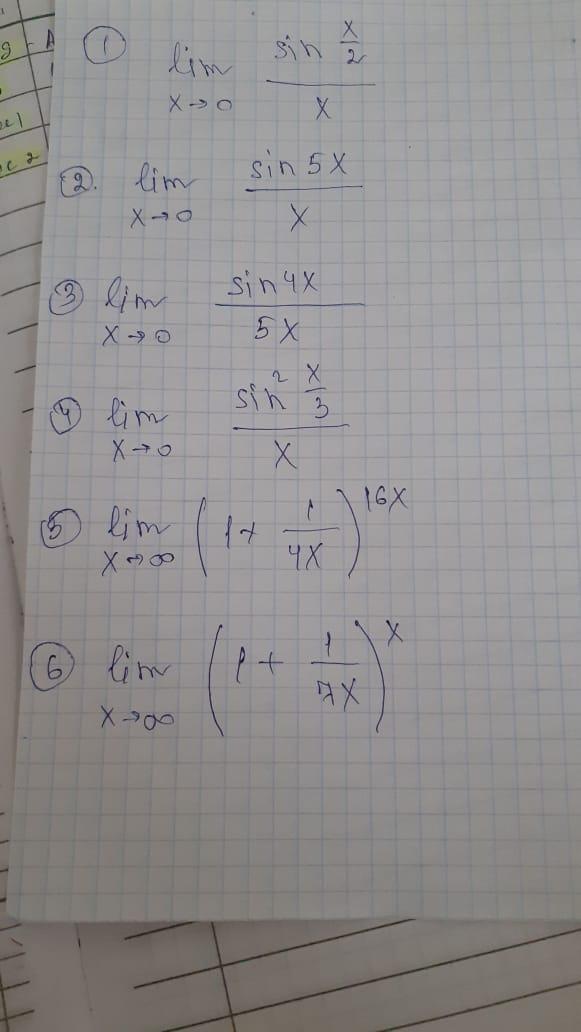 ① lim x→0 sin x/2 / x
②. lim x→0 sin 5x / x
③ lim x→0 sin 4x / 5x
④ lim x→0 sin² x/3 / x
⑤ lim x→∞ (1 + 1/4x)^16x
⑥ lim x→∞ (1 + 1/7x)^x